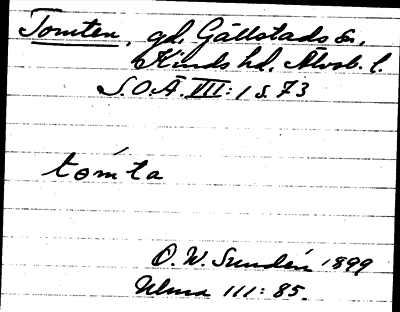 Tomten, gd. Gällstads sn,
Kinds hd. Älvsb. l.
S.O.Ä. III: 1 s. 73
tom´ta
O. W. Sundén 1899
Ulma 111: 85.